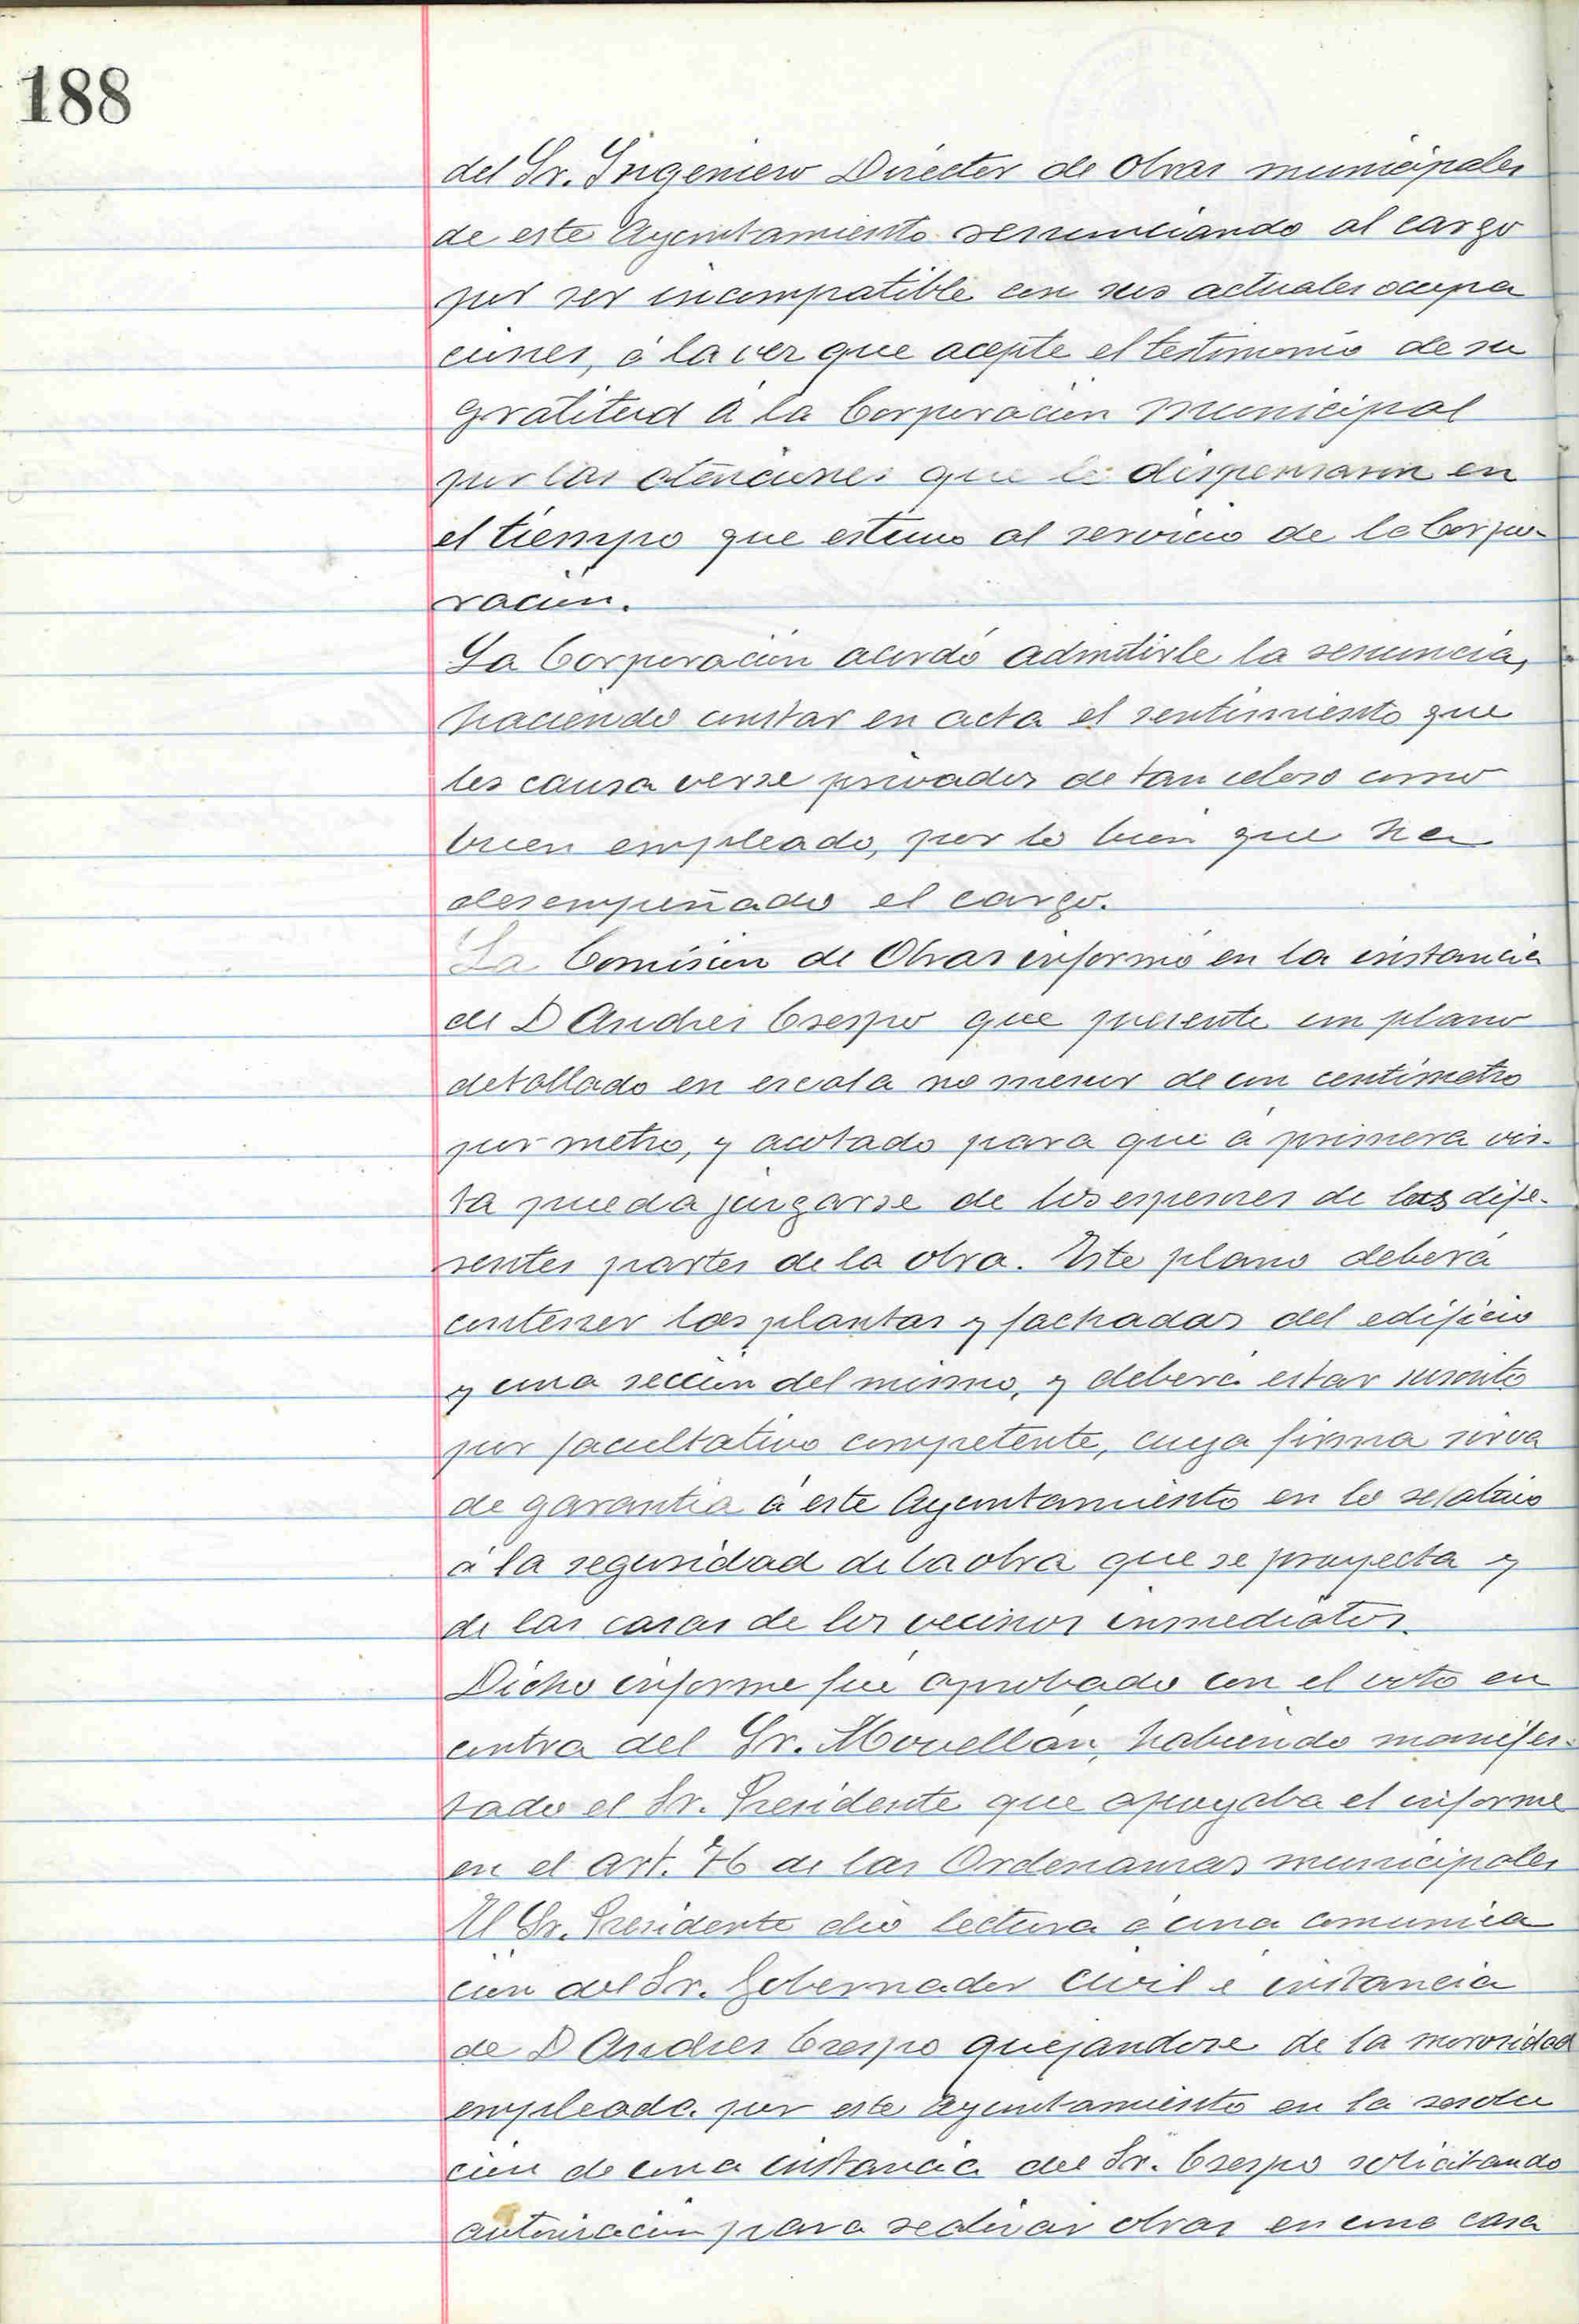 188
del Sr. Ingeniero Director de Obras municipales
de este Ayuntamiento renunciando al cargo
por ser incompatible con sus actuales ocupa
ciones, á la vez que acepte el testimonio de su
gratitud á la Corporación Municipal
por las atenciones que le dispensaron en
el tiempo que estuvo al servicio de la Corpo-
ración.
La Corporación acordó admitirle la renuncia,
haciendo constar en acta el sentimiento que
les causa verse privados de tan celoso como
buen empleado, por lo bien que ha
desempeñado el cargo.
La Comisión de Obras informó en la instancia
de D Andres Crespo que presente un plano
detallado en escala no menor de un centímetro
por metro, y acotado para que á primera vis-
ta pueda juzgarse de los espesores de las dife-
rentes partes de la obra. Este plano deberá
contener las plantas y fachadas del edificio
y una sección del mismo, y deberá estar suscrito
por facultativo competente, cuya firma sirva
de garantia á este Ayuntamiento en lo relativo
á la seguridad de la obra que se proyecta y
de las casas de los vecinos inmediatos.
Dicho informe fué aprobado con el voto en
contra del Sr. Movellán, habiendo manifes-
tado el Sr. Presidente que apoyaba el informe
en el art. 76 de las Ordenanzas municipales
El Sr. Presidente dió lectura á una comunica
ción del Sr. Gobernador Civil é instancia
de D Andres Crespo quejandose de la morosidad
empleada por este Ayuntamiento en la resolu
ción de una instancia del Sr. Crespo solicitando
autorización para realizar obras en una casa